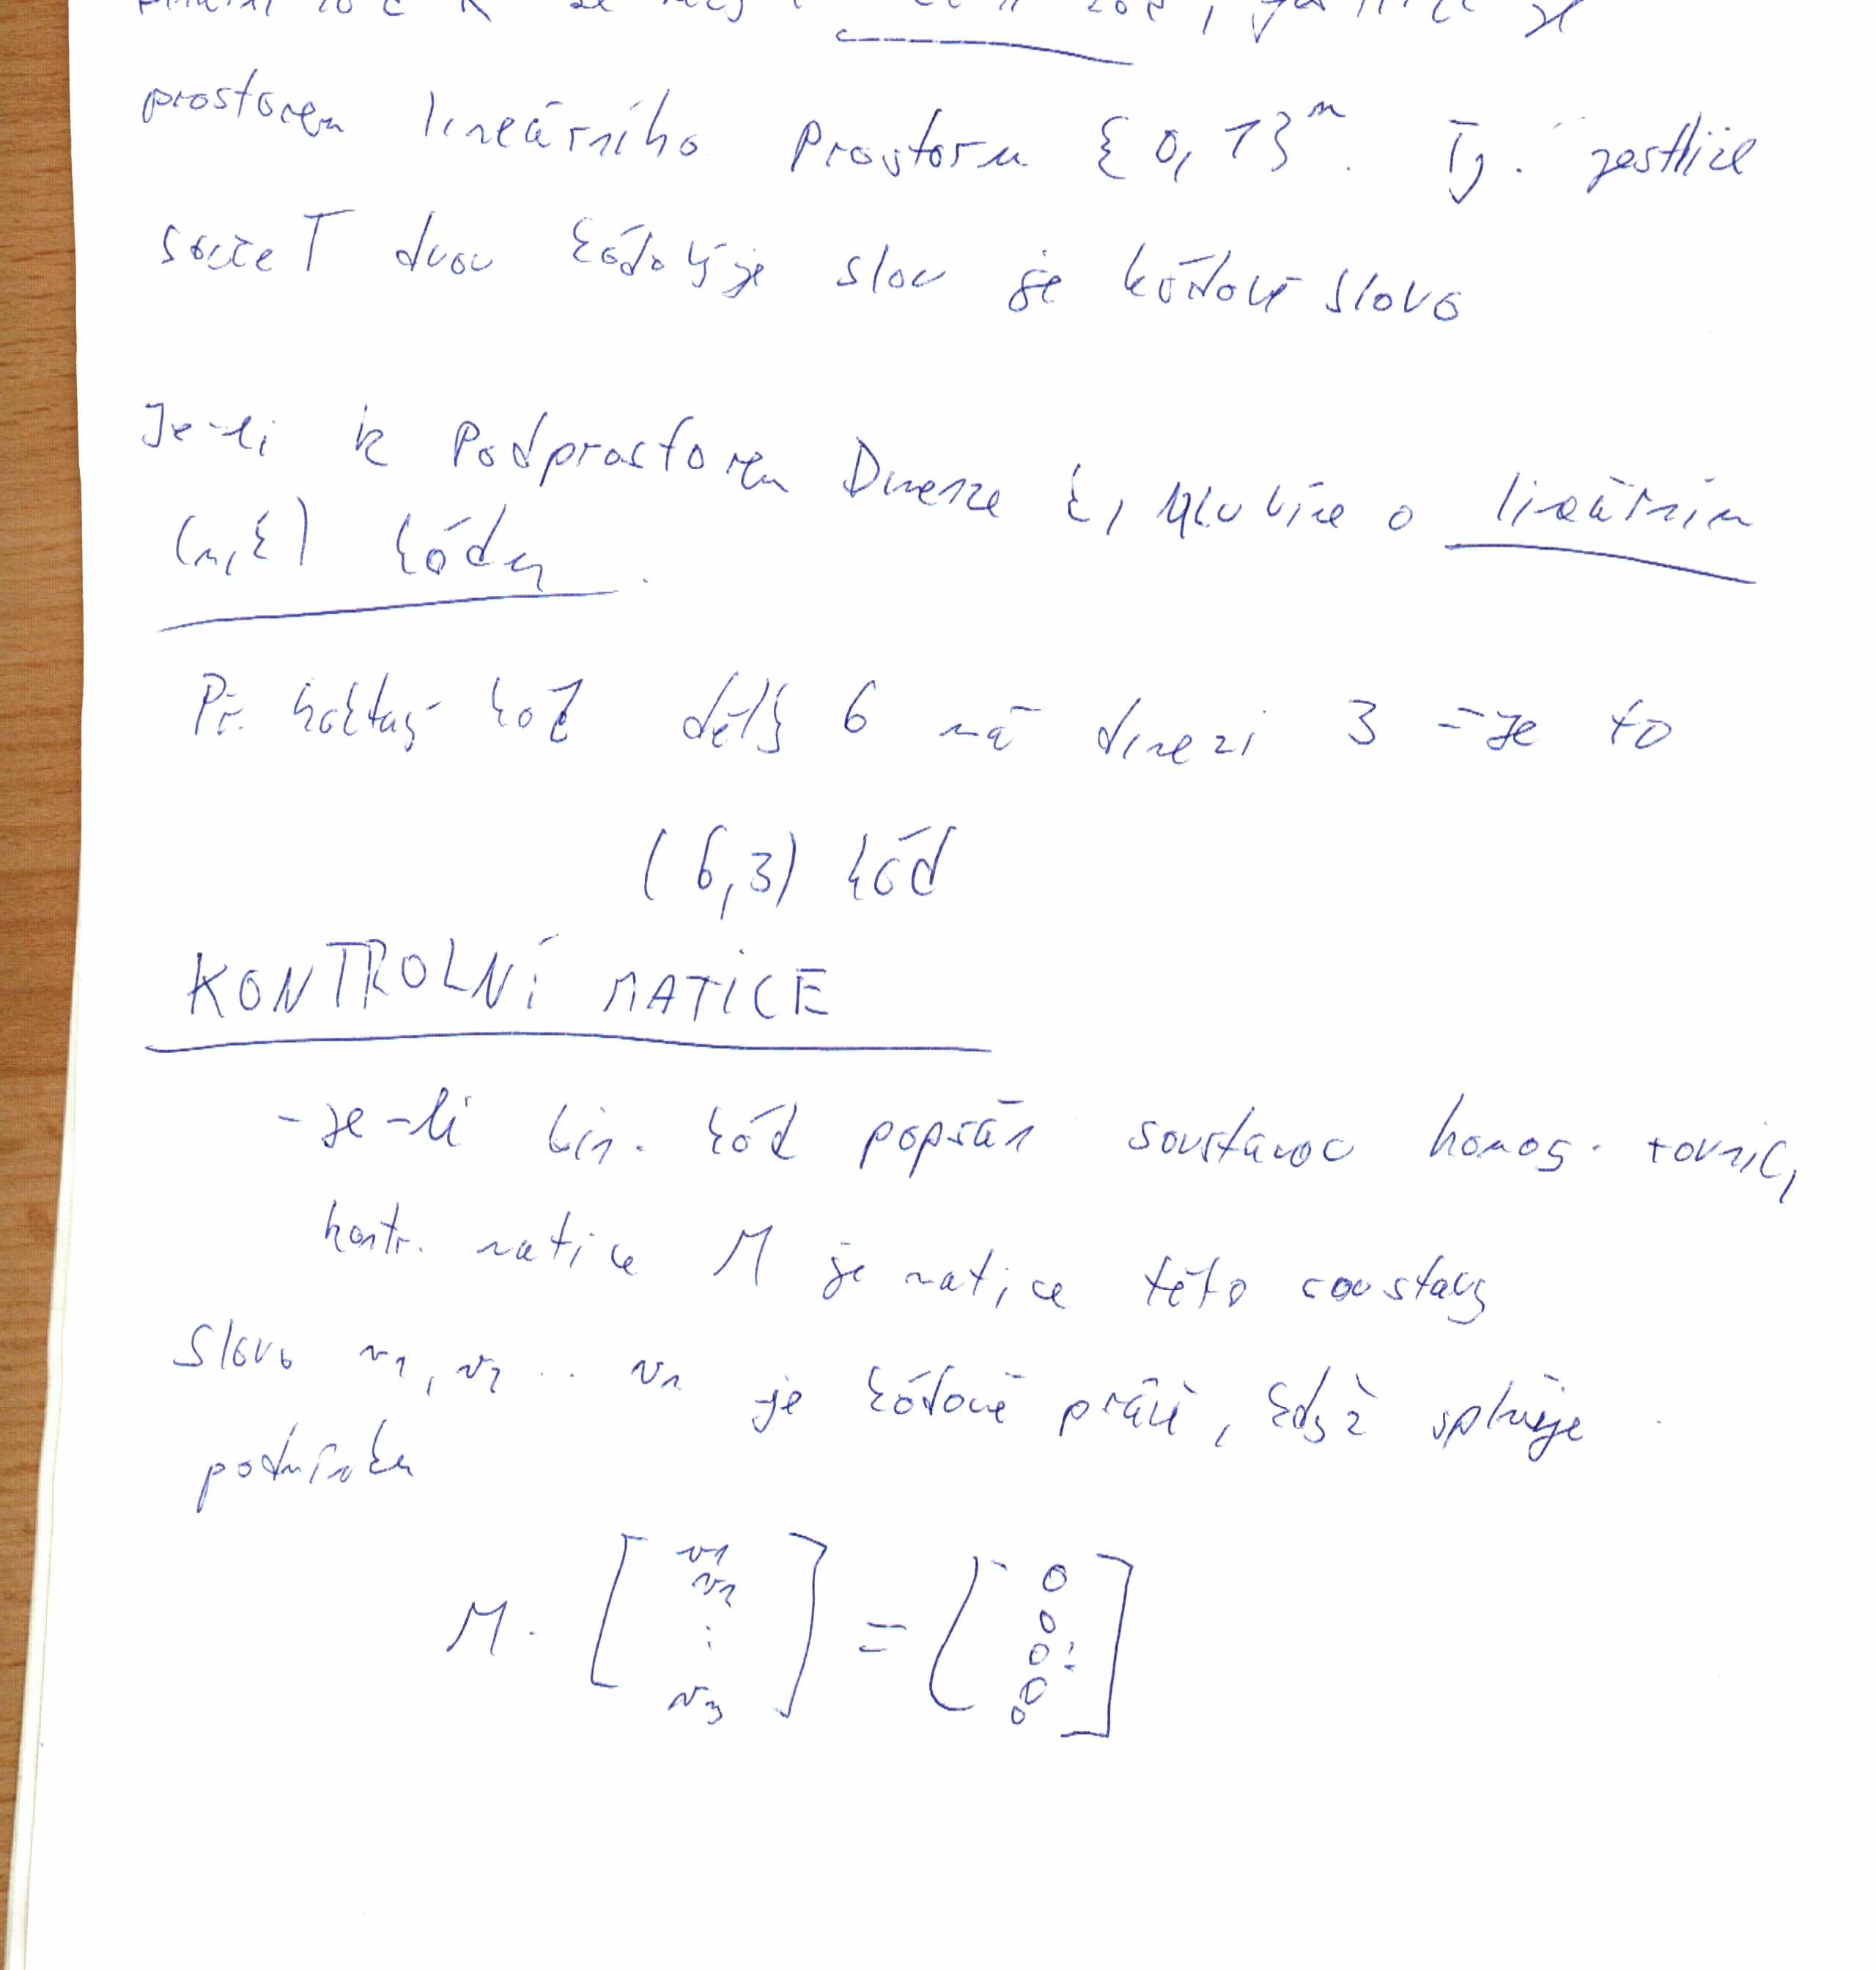 prostorem lineárního prostoru {0,1}^n. Tj. jestliže
součet dvou kódových slov je kódové slovo
Je-li K podprostorem Dimenze k, mluvíme o lineárním
(n,k) kódu.
Př. koktavý kód délky 6 má dimezi 3 = je to
(6,3) kód
KONTROLNÍ MATICE
- je-li bin. kód popsán soustavou homog. rovnic,
kontr. matice M je matice této soustavy
Slovo v1, v2 .. vn je kódové právě, když splňuje
podmínku
M · [ v1 v2 ⋮ vn ] = [ 0 0 0 ⋮ 0 0 ]